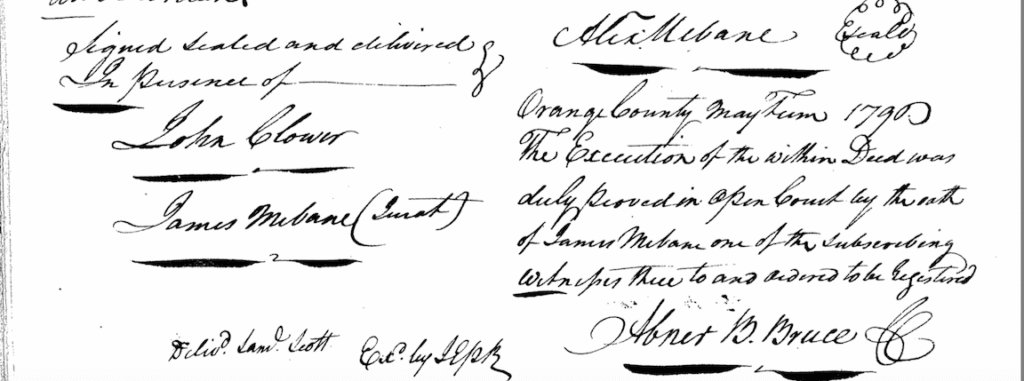 Signed sealed and delivered
In Presence of
John Clower
James Mebane (Jurat)
Deliv.d Sam.l Scott
Ex.d by
Alex. Mebane
Seal
Orange County May Term 1790
The Execution of the within Deed was
duly proved in Open Court by the oath
of James Mebane one of the subscribing
witnesses there to and ordered to be Registered
Abner B. Bruce CC